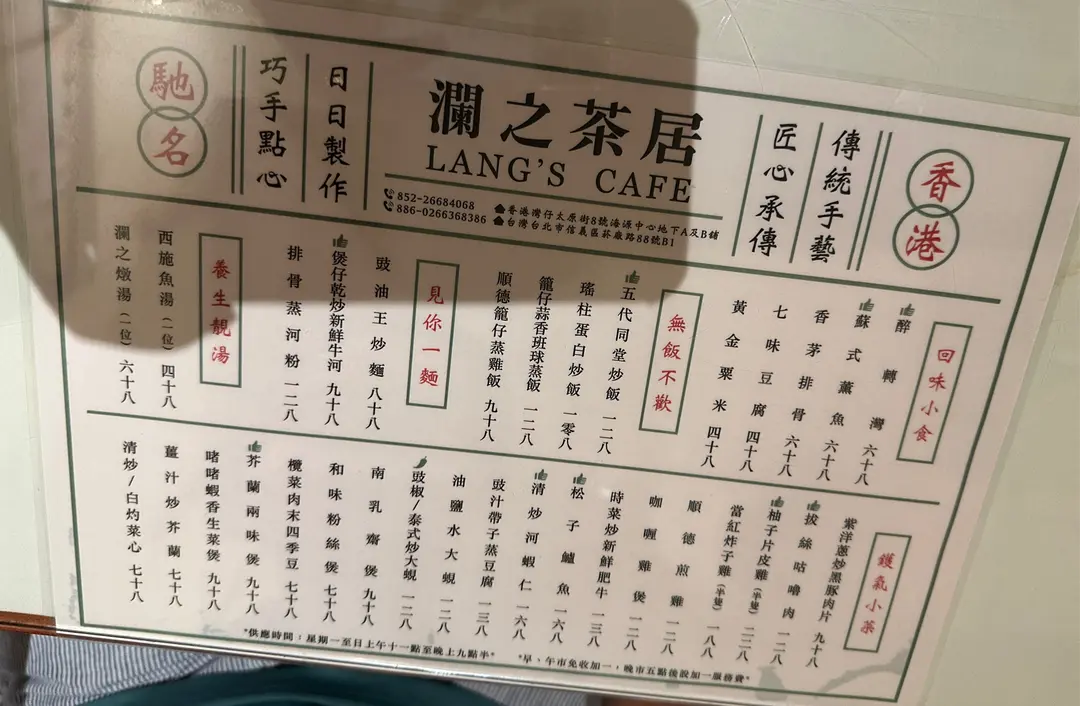 香港
傳統手藝
匠心承傳
瀾之茶居
LANG'S CAFE
852-26684068
886-0266368386
香港灣仔太原街8號海源中心地下A及B鋪
台灣台北市信義區菸廠路88號B1
日日製作
巧手點心
馳名
回味小食
醉轉灣 六十八
蘇式薰魚 六十八
香茅排骨 六十八
七味豆腐 四十八
黃金粟米 四十八
無飯不歡
五代同堂炒飯 一二八
瑤柱蛋白炒飯 一零八
籠仔蒜香班球蒸飯 一二八
順德籠仔蒸雞飯 九十八
見你一麵
豉油王炒麵 八十八
煲仔乾炒新鮮牛河 九十八
排骨蒸河粉 一二八
養生靚湯
西施魚湯(一位) 四十八
瀾之燉湯(一位) 六十八
鑊氣小菜
紫洋蔥炒黑豚肉片 九十八
拔絲咕嚕肉 一二八
柚子片皮雞(半隻) 二三八
當紅炸子雞(半隻)
順德煎雞 一八八
咖喱雞煲 一二八
時菜炒新鮮肥牛 一三八
松子鱸魚 一六八
清炒河蝦仁 一六八
豉汁帶子蒸豆腐 一三八
油鹽水大蜆 一二八
豉椒/泰式炒大蜆 一二八
南乳齋煲 九十八
和味粉絲煲 七十八
欖菜肉末四季豆 七十八
芥蘭兩味煲 九十八
啫啫蝦香生菜煲 九十八
薑汁炒芥蘭 七十八
清炒/白灼菜心 七十八
*供應時間：星期一至日上午十一點至晚上九點半*
*早、午市免收加一，晚市五點後設加一服務費*